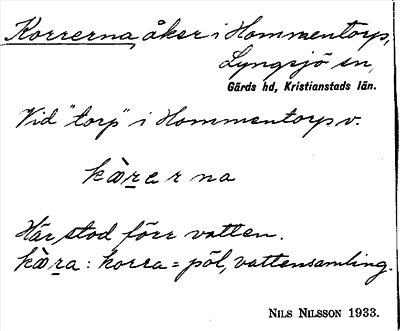 Korrerna, åker i Hommentorp,
Lyngsjö sn,
Gärds hd, Kristianstads län.
Vid "torp" i Hommentorp v.
kàrerna
Här stod förr vatten.
kàra: korra = pöl, vattensamling.
NILS NILSSON 1933.